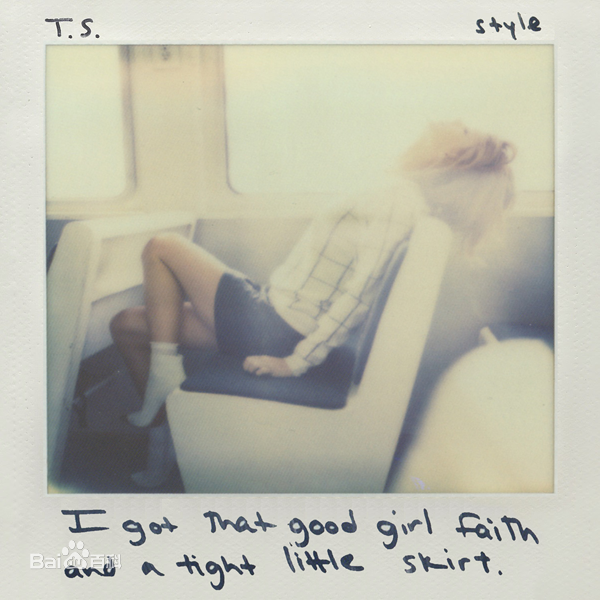 T.S. style
I got that good girl faith
and a tight little skirt.
Bai百科